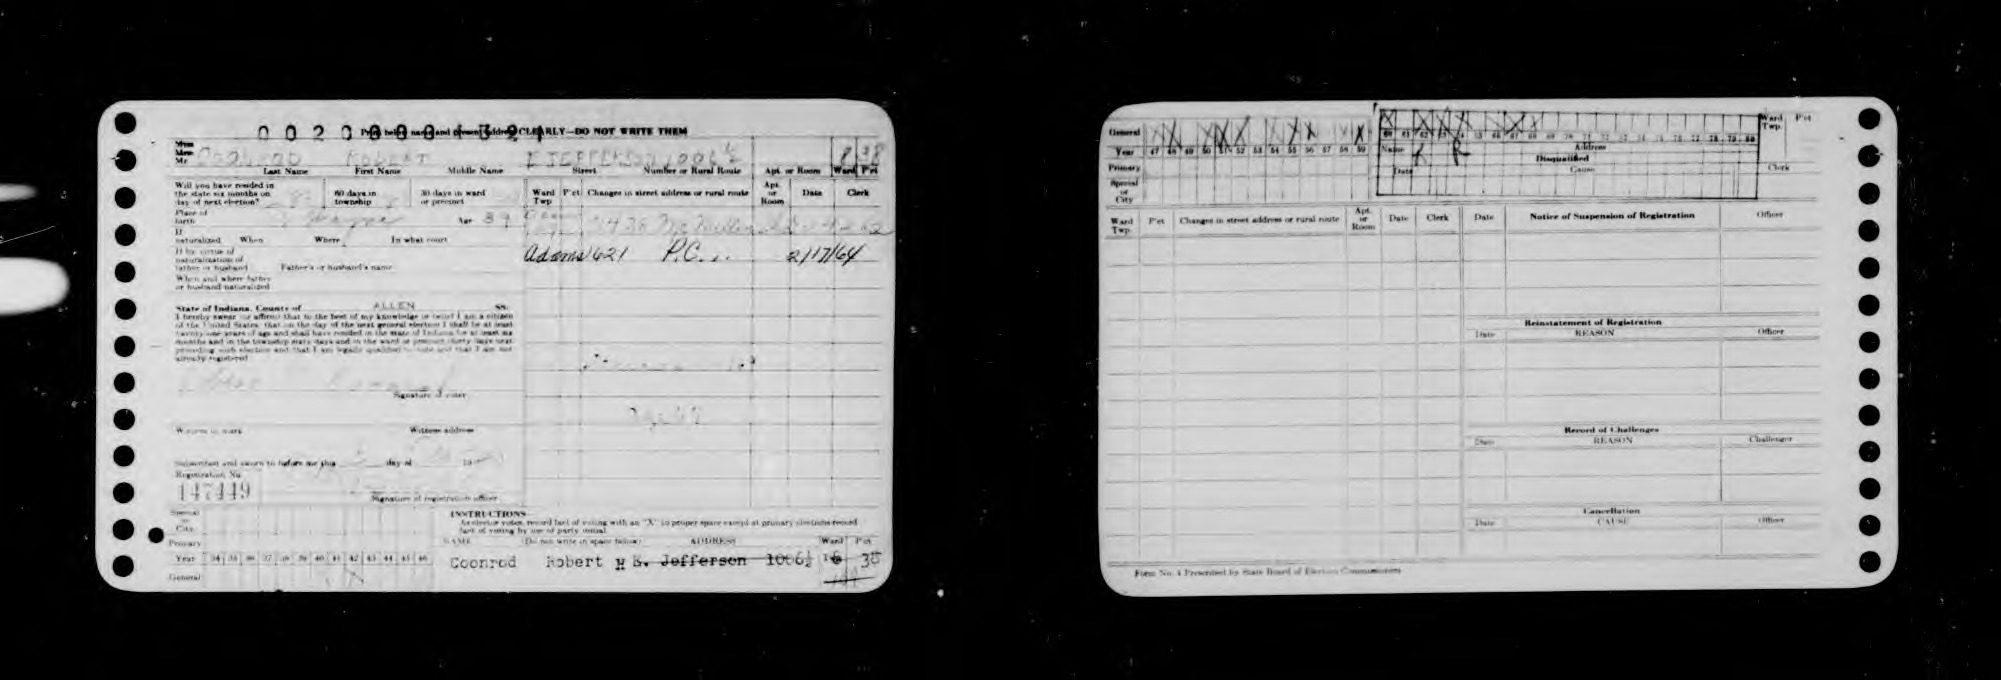 0020000-1321
Print below name and present address CLEARLY—DO NOT WRITE THEM
Miss
Mrs.
Mr. COONROD ROBERT E JEFFERSON 1006½ 8 38
Last Name First Name Middle Name Street Number or Rural Route Apt. or Room Ward P'ct
Will you have resided in the state six months on day of next election? 60 days in township 30 days in ward or precinct
Ward Twp P'ct Changes in street address or rural route Apt. or Room Date Clerk
Place of birth Ft Wayne Age 39
2436 McMillen
If naturalized When Where In what court
Adams 621 P.C. 2/17/64
If by virtue of naturalization of father or husband Father's or husband's name
When and where father or husband naturalized
State of Indiana, County of ALLEN SS:
I hereby swear or affirm that to the best of my knowledge or belief I am a citizen
of the United States, that on the day of the next general election I shall be at least
twenty-one years of age and shall have resided in the state of Indiana for at least six
months and in the township sixty days and in the ward or precinct thirty days next
preceding such election and that I am legally qualified to vote and that I am not
already registered
Signature of voter
Witness to mark Witness address
Subscribed and sworn to before me this day of 19
Registration No.
147449
Signature of registration officer
Special or City
INSTRUCTIONS
As elector votes, record fact of voting with an "X" in proper space except at primary elections record
fact of voting by use of party initial
Primary NAME (Do not write in space below) ADDRESS Ward P'ct
Year 34 35 36 37 38 39 40 41 42 43 44 45 46
Coonrod Robert M E. Jefferson 1006½ 38
General
General
Year 47 48 49 50 51 52 53 54 55 56 57 58 59
Primary
Special or City
60 61 62 63 64 65 66 67 68 69 70 71 72 73 74 75 76 77 78 79 80
Name Address
R R
Disqualified
Date Cause
Ward Twp. P'ct
Clerk
Ward Twp. P'ct Changes in street address or rural route Apt. or Room Date Clerk Date Notice of Suspension of Registration Officer
Reinstatement of Registration
Date REASON Officer
Record of Challenges
Date REASON Challenger
Cancellation
Date CAUSE Officer
Form No. 4 Prescribed by State Board of Election Commissioners